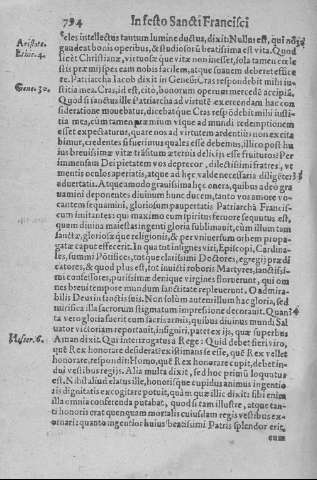 794 In festo Sancti Francisci
Aristote.
Ethic. 4.
Gene. 30.
Hester. 6.
teles intellectus tantum lumine ductus, dixit: Nullus est, qui nō
gaudeat bonis operibus, & studiosorū beatissima est vita. Quod
licèt Christianæ, virtuosæ quæ vitæ non inesset, sola tamen cæle
stis præmij spes eam nobis facilem, atque suauem deberet effice
re. Patriarcha Iacob dixit in Genesi: Cras respondebit mihi iu-
titia mea. Cras, id est, citò, bonorum operum mercedē accipiā.
Quod si sanctus ille Patriarcha ad virtutē exercendam hac con
sideratione mouebatur, dicebatque Cras respōdebit mihi iusti-
tia mea, cùm tamen præmium vsque ad mundi redemptionem
esset expectaturus, quare nos ad virtutem ardentiùs non excita
bimur, credentes si fuerimus quales esse debemus, illico post hu
ius breuissimæ vitæ trāsitum æternis delicijs esse fruituros? Per
immensum Dei pietatem vos deprecor, dilectissimi fratres, ve
mentis oculos aperiatis, atque ad hęc valde necessaria diligēter
aduertatis. Atque a modo grauissima hęc onera, quibus adeo gra
uamini deponentes diuinum hunc ducem, tanto vos amore vo-
cantem sequamini, gloriosum paupertatis Patriarchā Francis-
cum imitantes: qui maximo cum spiritus feruore sequutus est,
quem diuina maiestas ingenti gloria sublimauit, cùm illum tam
sanctæ, gloriosæque religionis, & per vniuersum orbem propa-
gatæ caput effecerit. In qua tot insignes viri, Episcopi, Cardina-
les, summi Pōtifices, totque clarissimi Doctores, egregij prædi
catores, & quod plus est, tot inuicti roboris Martyres, sanctissi-
mi confessores, purissimæ denique virgines floruerunt, qui om
nes breui tempore mundum sanctitate repleuerunt. O admira-
bilis Deus in sanctis suis. Non solùm autem illum hac gloria, sed
mirifica illa sacrorum stigmatum impressione decorauit. Quan-
ta vero gloria fuerit eum sacris armis, quibus diuinus mundi Sal
uator victoriam reportauit, insigniri, patet ex ijs, quæ superbus
Aman dixit. Qui interrogatus a Rege: Quid debet fieri viro,
quē Rex honorare desiderat: existimans se esse, quē Rex vellet
honorare, respondit: Homo, quē Rex honorare cupit, debet in-
dui vestibus regijs. Alia multa dixit, sed hoc primū loquutus
est. Nihil aliud elatus ille, honorisque cupidus animus ingentio
ris dignitatis excogitare potuit, quàm quæ illic dixit: sibi enim
illa omnia conferenda putabat, quod si tam illustre, atque tan-
ti honoris erat quenquam mortalis cuiusdam regis vestibus ex-
ornari: quanto ingentior huius beatissimi Patris splendor erit,
cum